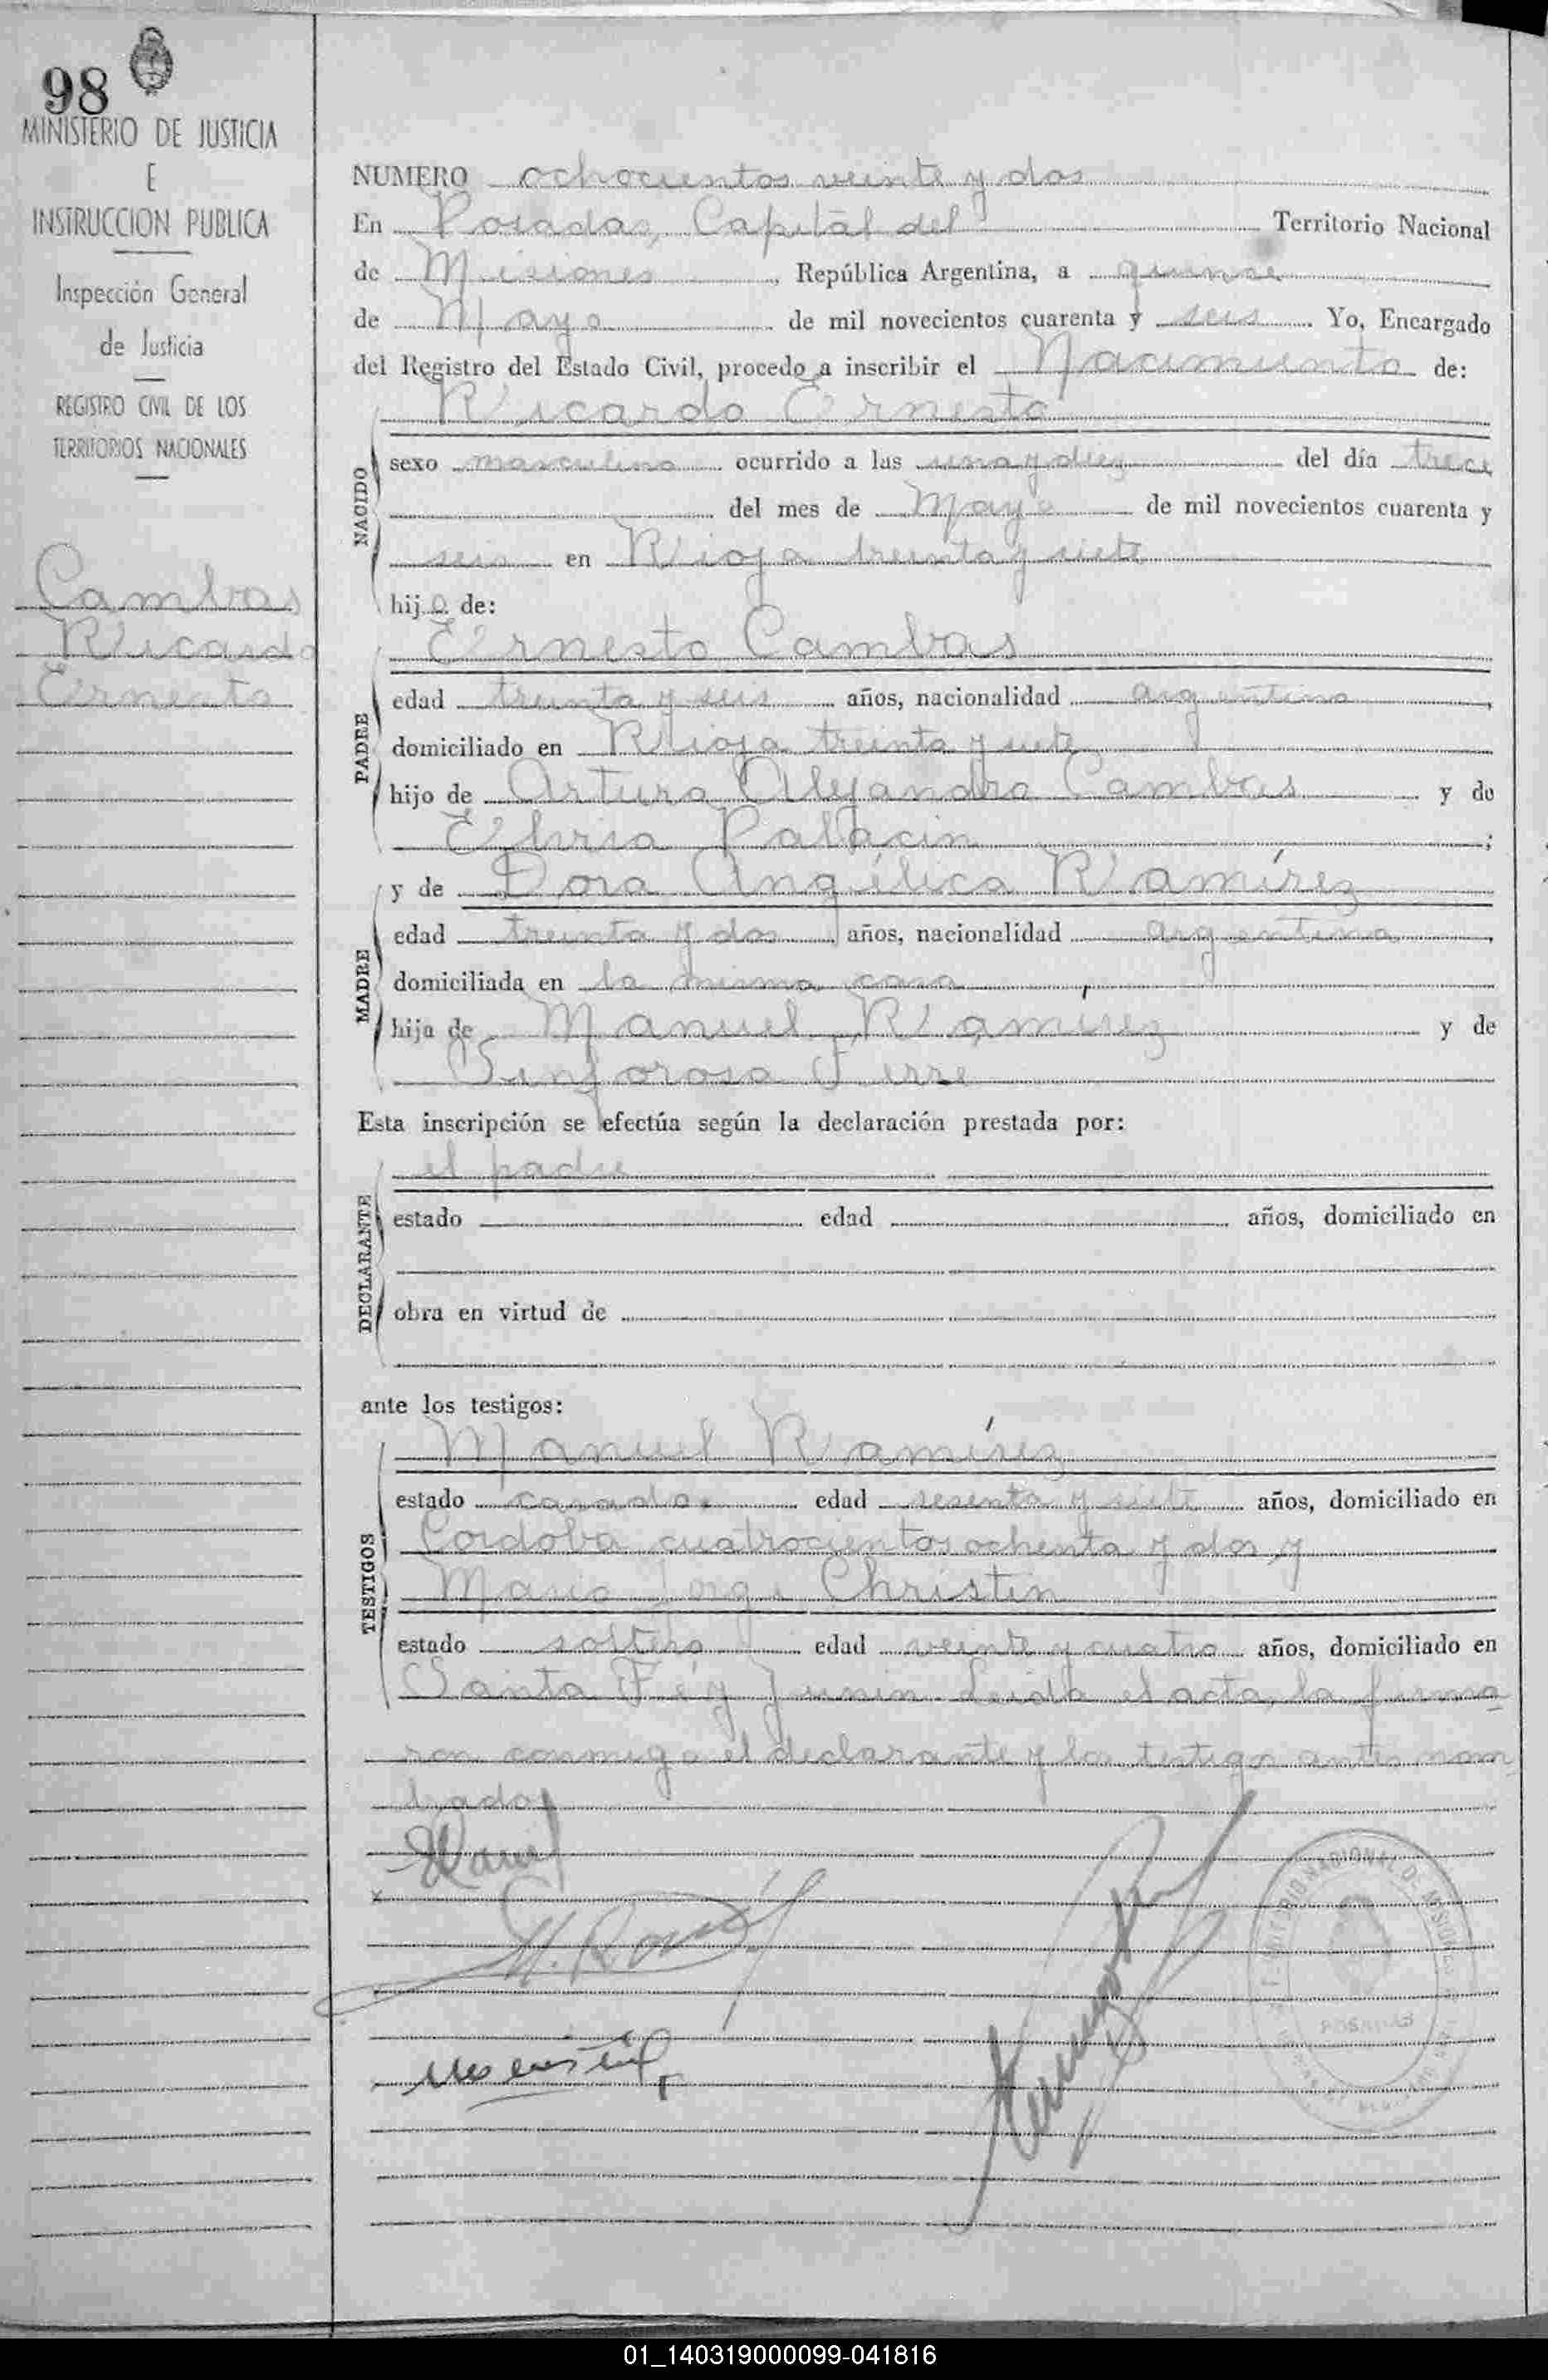 98
MINISTERIO DE JUSTICIA
E
INSTRUCCION PUBLICA
Inspección General
de Justicia
REGISTRO CIVIL DE LOS
TERRITORIOS NACIONALES
Cambas
Ricardo
Ernesto
NUMERO ochocientos veinte y dos
En Posadas, Capital del Territorio Nacional
de Misiones, República Argentina, a quince
de Mayo de mil novecientos cuarenta y seis. Yo, Encargado
del Registro del Estado Civil, procedo a inscribir el Nacimiento de:
Ricardo Ernesto
NACIDO
sexo masculino ocurrido a las una y diez del día trece
del mes de Mayo de mil novecientos cuarenta y
seis en Rioja treinta y siete
hijo de:
Ernesto Cambas
PADRE
edad treinta y seis años, nacionalidad argentino,
domiciliado en Rioja treinta y siete
hijo de Arturo Alejandro Cambas y de
Elvira Palacin;
y de Dora Angélica Ramírez
MADRE
edad treinta y dos años, nacionalidad argentina,
domiciliada en la misma casa,
hija de Manuel Ramírez y de
Sinforosa Ferre
Esta inscripción se efectúa según la declaración prestada por:
el padre
DECLARANTE
estado edad años, domiciliado en
obra en virtud de
ante los testigos:
Manuel Ramírez
TESTIGOS
estado casado, edad sesenta y siete años, domiciliado en
Cordoba cuatrocientos ochenta y dos y
Mario Jorge Christin
estado soltero edad veinte y cuatro años, domiciliado en
Santa Fé y Junin. Leida el acta, la firma-
ron conmigo el declarante y los testigos antes nom
brados
M. Ramírez
POSADAS
01_140319000099-041816